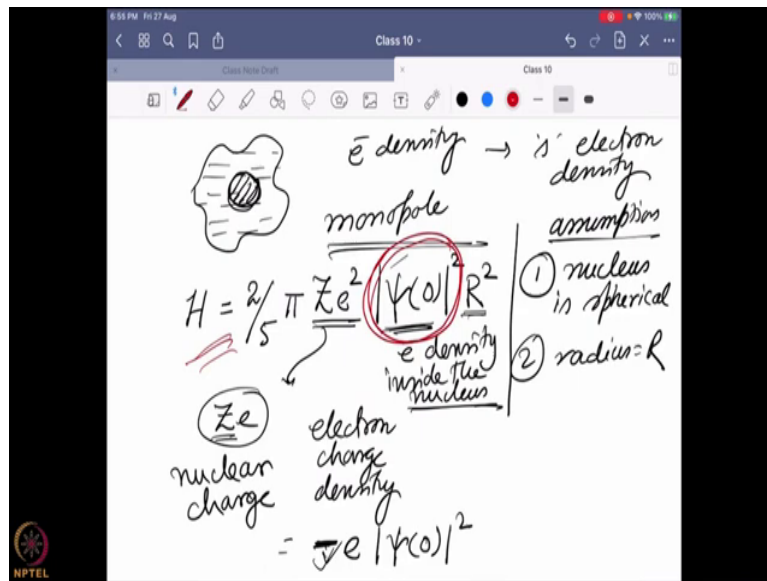 6:55 PM Fri 27 Aug
100%
Class 10
Class Note Draft
Class 10
ē density → 's' electron density
monopole
assumption
H = 2/5 π Ze² |ψ(0)|² R²
e density inside the nucleus
① nucleus is spherical
② radius = R
Ze
nuclear charge
electron charge density
= - e |ψ(0)|²
NPTEL